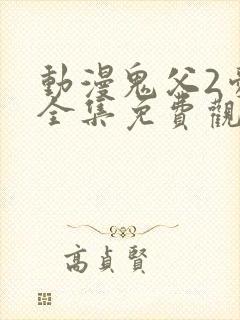 動漫鬼父2
全集免費觀
高貞賢